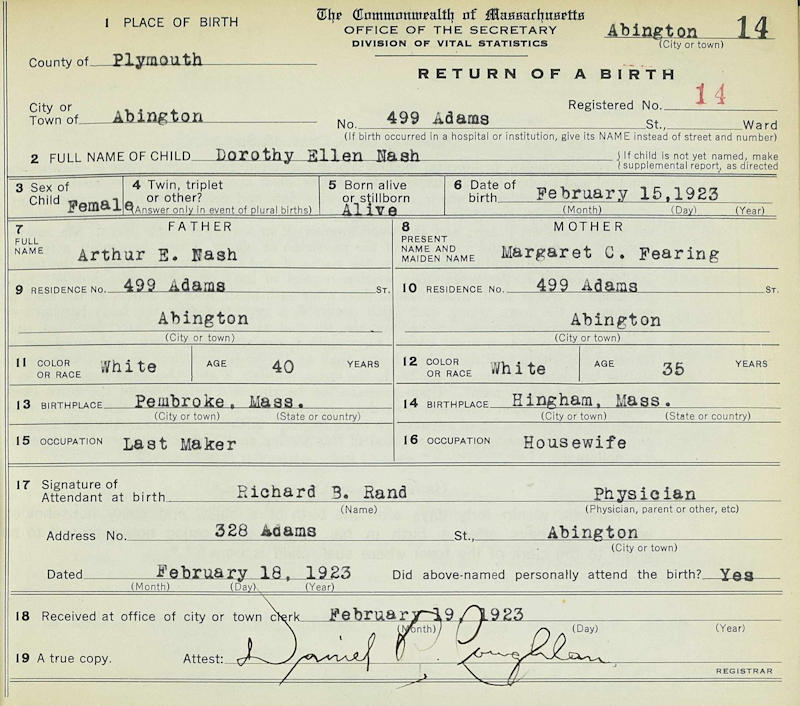 The Commonwealth of Massachusetts
OFFICE OF THE SECRETARY
DIVISION OF VITAL STATISTICS
Abington 14
(City or town)
1 PLACE OF BIRTH
County of Plymouth
RETURN OF A BIRTH
Registered No. 14
City or
Town of Abington
No. 499 Adams St., Ward
(If birth occurred in a hospital or institution, give its NAME instead of street and number)
2 FULL NAME OF CHILD Dorothy Ellen Nash
If child is not yet named, make
supplemental report, as directed
3 Sex of
Child Female
4 Twin, triplet
or other?
(Answer only in event of plural births)
5 Born alive
or stillborn
Alive
6 Date of
birth February 15,1923
(Month) (Day) (Year)
7 FATHER
FULL
NAME Arthur E. Nash
8 MOTHER
PRESENT
NAME AND
MAIDEN NAME Margaret C. Fearing
9 RESIDENCE No. 499 Adams ST.
10 RESIDENCE No. 499 Adams ST.
Abington
(City or town)
Abington
(City or town)
11 COLOR
OR RACE White AGE 40 YEARS
12 COLOR
OR RACE White AGE 35 YEARS
13 BIRTHPLACE Pembroke, Mass.
(City or town) (State or country)
14 BIRTHPLACE Hingham, Mass.
(City or town) (State or country)
15 OCCUPATION Last Maker
16 OCCUPATION Housewife
17 Signature of
Attendant at birth Richard B. Rand Physician
(Name) (Physician, parent or other, etc)
Address No. 328 Adams St., Abington
(City or town)
Dated February 18, 1923 Did above-named personally attend the birth? Yes
(Month) (Day) (Year)
18 Received at office of city or town clerk February 19, 1923
(Month) (Day) (Year)
19 A true copy. Attest: Daniel R. Coughlan
REGISTRAR